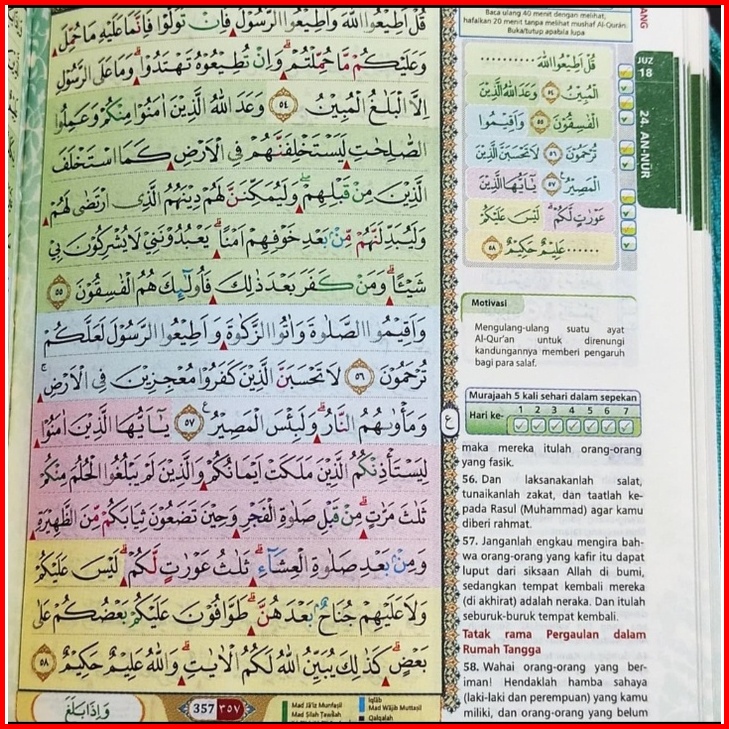 قُلْ اَطِيْعُوا اللّٰهَ وَاَطِيْعُوا الرَّسُوْلَ فَاِنْ تَوَلَّوْا فَاِنَّمَا عَلَيْهِ مَا حُمِّلَ
وَعَلَيْكُمْ مَّا حُمِّلْتُمْ ۗوَاِنْ تُطِيْعُوْهُ تَهْتَدُوْا ۗوَمَا عَلَى الرَّسُوْلِ
اِلَّا الْبَلٰغُ الْمُبِيْنُ ٥٤ وَعَدَ اللّٰهُ الَّذِيْنَ اٰمَنُوْا مِنْكُمْ وَعَمِلُوا
الصّٰلِحٰتِ لَيَسْتَخْلِفَنَّهُمْ فِى الْاَرْضِ كَمَا اسْتَخْلَفَ
الَّذِيْنَ مِنْ قَبْلِهِمْ ۖوَلَيُمَكِّنَنَّ لَهُمْ دِيْنَهُمُ الَّذِى ارْتَضٰى لَهُمْ
وَلَيُبَدِّلَنَّهُمْ مِّنْۢ بَعْدِ خَوْفِهِمْ اَمْنًا ۗيَعْبُدُوْنَنِيْ لَا يُشْرِكُوْنَ بِيْ
شَيْـًٔا ۗوَمَنْ كَفَرَ بَعْدَ ذٰلِكَ فَاُولٰۤىِٕكَ هُمُ الْفٰسِقُوْنَ ٥٥
وَاَقِيْمُوا الصَّلٰوةَ وَاٰتُوا الزَّكٰوةَ وَاَطِيْعُوا الرَّسُوْلَ لَعَلَّكُمْ
تُرْحَمُوْنَ ٥٦ لَا تَحْسَبَنَّ الَّذِيْنَ كَفَرُوْا مُعْجِزِيْنَ فِى الْاَرْضِۚ
وَمَأْوٰىهُمُ النَّارُۗ وَلَبِئْسَ الْمَصِيْرُ ࣖ ٥٧ يٰٓاَيُّهَا الَّذِيْنَ اٰمَنُوْا
لِيَسْتَأْذِنْكُمُ الَّذِيْنَ مَلَكَتْ اَيْمَانُكُمْ وَالَّذِيْنَ لَمْ يَبْلُغُوا الْحُلُمَ مِنْكُمْ
ثَلٰثَ مَرّٰتٍۗ مِنْ قَبْلِ صَلٰوةِ الْفَجْرِ وَحِيْنَ تَضَعُوْنَ ثِيَابَكُمْ مِّنَ الظَّهِيْرَةِ
وَمِنْۢ بَعْدِ صَلٰوةِ الْعِشَاۤءِۗ ثَلٰثُ عَوْرٰتٍ لَّكُمْۗ لَيْسَ عَلَيْكُمْ
وَلَا عَلَيْهِمْ جُنَاحٌۢ بَعْدَهُنَّۗ طَوَّافُوْنَ عَلَيْكُمْ بَعْضُكُمْ عَلٰى
بَعْضٍۗ كَذٰلِكَ يُبَيِّنُ اللّٰهُ لَكُمُ الْاٰيٰتِۗ وَاللّٰهُ عَلِيْمٌ حَكِيْمٌ ٥٨
وَاِذَا بَلَغَ
357 ٣٥٧
Mad Jā'iz Munfaṣil
Mad Silah Ṭawīlah
Iqlāb
Mad Wājib Muttaṣil
Qalqalah
Baca ulang 40 menit dengan melihat,
hafalkan 20 menit tanpa melihat mushaf Al-Qurān.
Buka/tutup apabila lupa
قُلْ اَطِيْعُوا اللّٰهَ ..........
الْمُبِيْنُ ٥٤ وَعَدَ اللّٰهُ الَّذِيْنَ
الْفٰسِقُوْنَ ٥٥ وَاَقِيْمُوا
تُرْحَمُوْنَ ٥٦ لَا تَحْسَبَنَّ الَّذِيْنَ
الْمَصِيْرُ ࣖ ٥٧ يٰٓاَيُّهَا الَّذِيْنَ
عَوْرٰتٍ لَّكُمْۗ لَيْسَ عَلَيْكُمْ
...... عَلِيْمٌ حَكِيْمٌ ٥٨
JUZ
18
24. AN-NŪR
Motivasi
Mengulang-ulang suatu ayat
Al-Qur'an untuk direnungi
kandungannya memberi pengaruh
bagi para salaf.
Murajaah 5 kali sehari dalam sepekan
Hari ke- 1 2 3 4 5 6 7
ع
maka mereka itulah orang-orang
yang fasik.
56. Dan laksanakanlah salat,
tunaikanlah zakat, dan taatlah ke-
pada Rasul (Muhammad) agar kamu
diberi rahmat.
57. Janganlah engkau mengira bah-
wa orang-orang yang kafir itu dapat
luput dari siksaan Allah di bumi,
sedangkan tempat kembali mereka
(di akhirat) adalah neraka. Dan itulah
seburuk-buruk tempat kembali.
Tatak rama Pergaulan dalam
Rumah Tangga
58. Wahai orang-orang yang ber-
iman! Hendaklah hamba sahaya
(laki-laki dan perempuan) yang kamu
miliki, dan orang-orang yang belum